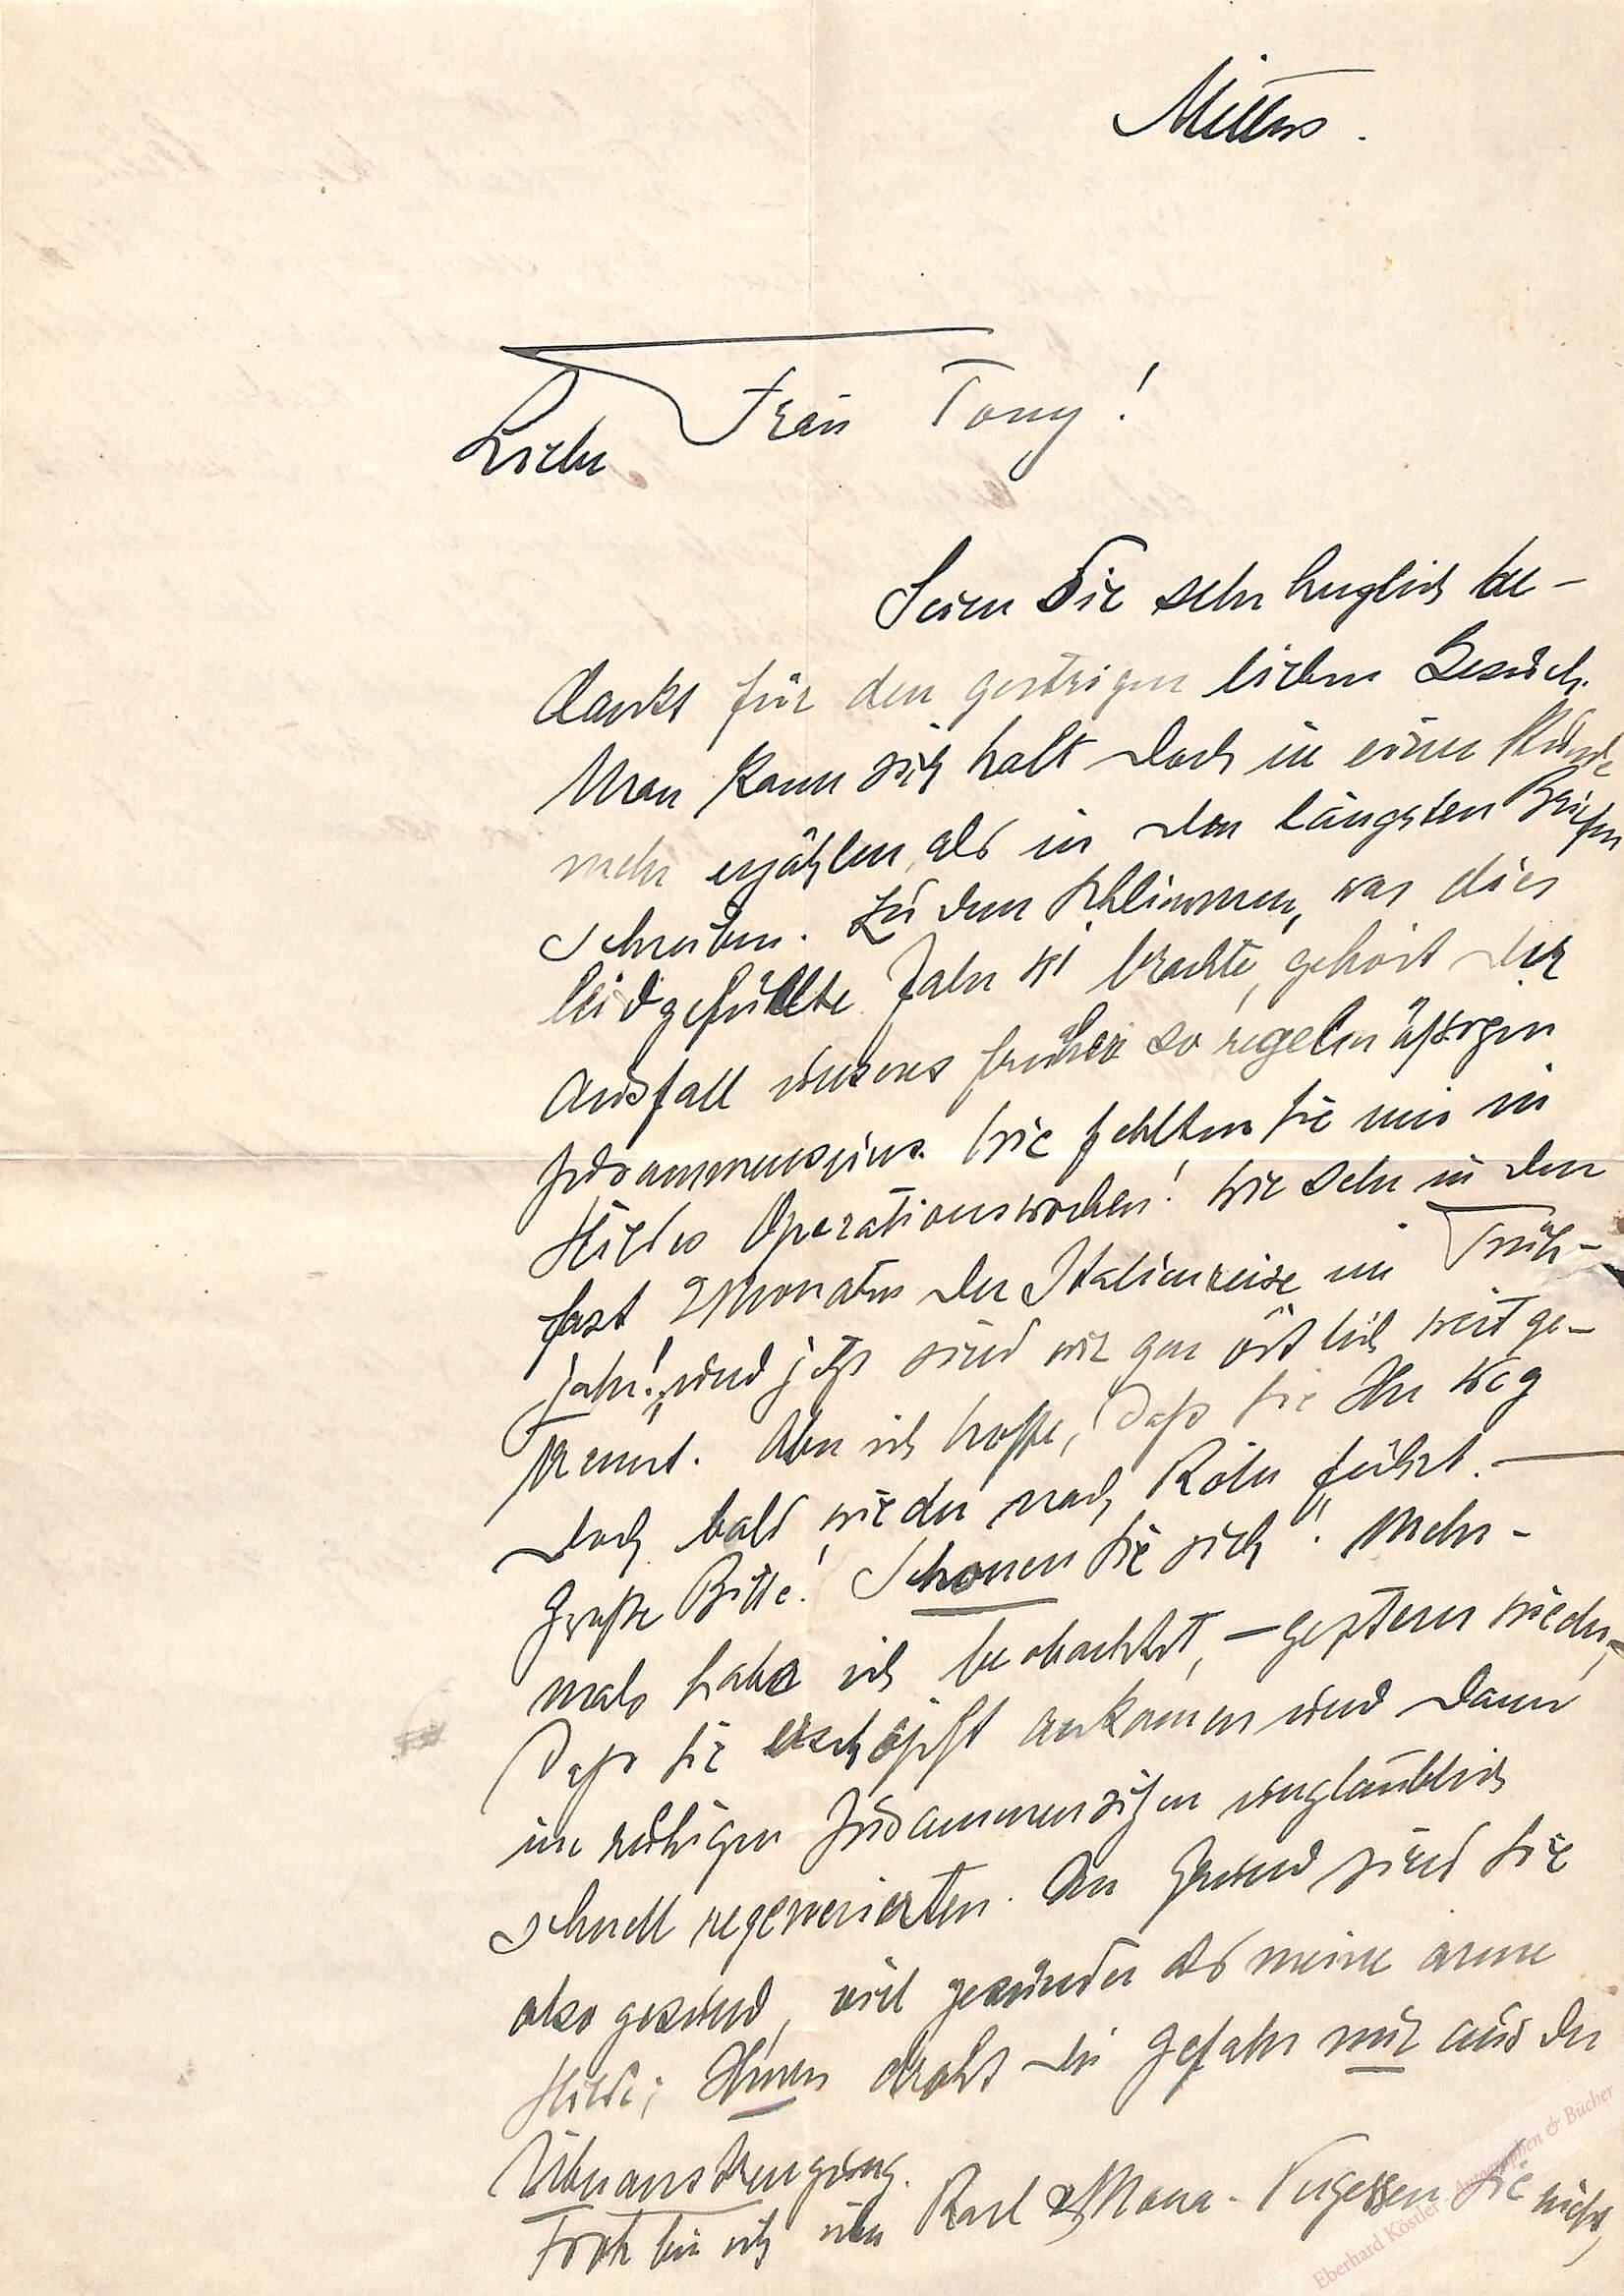 Mittw.
Liebe Frau Tony!
Seien Sie sehr herzlich be-
dankt für den gestrigen lieben Besuch.
Man kann sich halt doch in einer Stunde
mehr erzählen, als in den längsten Briefen
schreiben. Zu dem Schlimmen, was dies
leidgefüllte Jahr so brachte, gehört der
Ausfall unseres früher so regelmässigen
Zusammenseins. Wie fehlten Sie mir in
Hildes Operationswochen! Wie sehr in den
fast 2 Monaten der Italienreise im Früh-
jahr! Und jetzt sind wir gar örtlich weit ge-
trennt. Aber ich hoffe, dass Sie Ihr Weg
doch bald wieder nach Köln führt. —
Große Bitte! Schonen Sie sich! Mehr-
mals habe ich beobachtet, – gestern wieder,
dass Sie erschöpft ankamen und dann
im ruhigen Zusammensitzen unglaublich
schnell regenerierten. Im Grund sind Sie
also gesund, viel gesünder als meine arme
Hilde; Ihnen droht die Gefahr nur aus der
Überanstrengung.
Froh bin ich über Karl & Mona. Vergessen Sie nicht,
Eberhard Köstler Autographen & Bücher